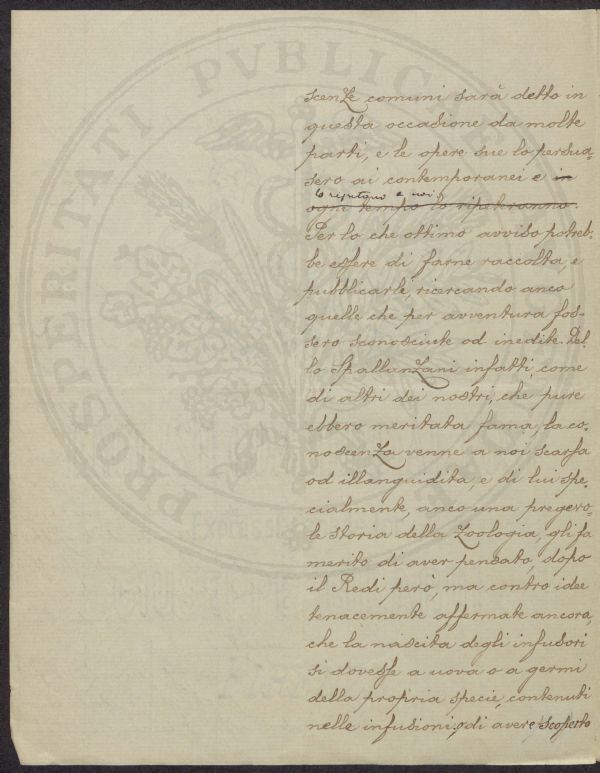 scenze comuni sarà detto in
questa occasione da molte
parti, e le opere sue lo persua=
sero ai contemporanei e in
lo ripetono a noi
ogni tempo lo ripeteranno.
Per lo che ottimo avviso potreb-
be essere di farne raccolta, e
pubblicarle, ricercando anco
quelle che per avventura fos-
sero sconosciute od inedite. Del
lo Spallanzani infatti, come
di altri dei nostri, che pure
ebbero meritata fama, la co-
noscenza venne a noi scarsa
od illanguidita, e di lui spe-
cialmente, anco una pregevo=
le storia della Zoologia, gli fa
merito di aver pensato, dopo
il Redi però, ma contro idee
tenacemente affermate ancora,
che la nascita degli infusori
si dovesse a uova o a germi
della propria specie, contenuti
nelle infusioni; di avere scoperto
PROSPERITATI PVBLICAE